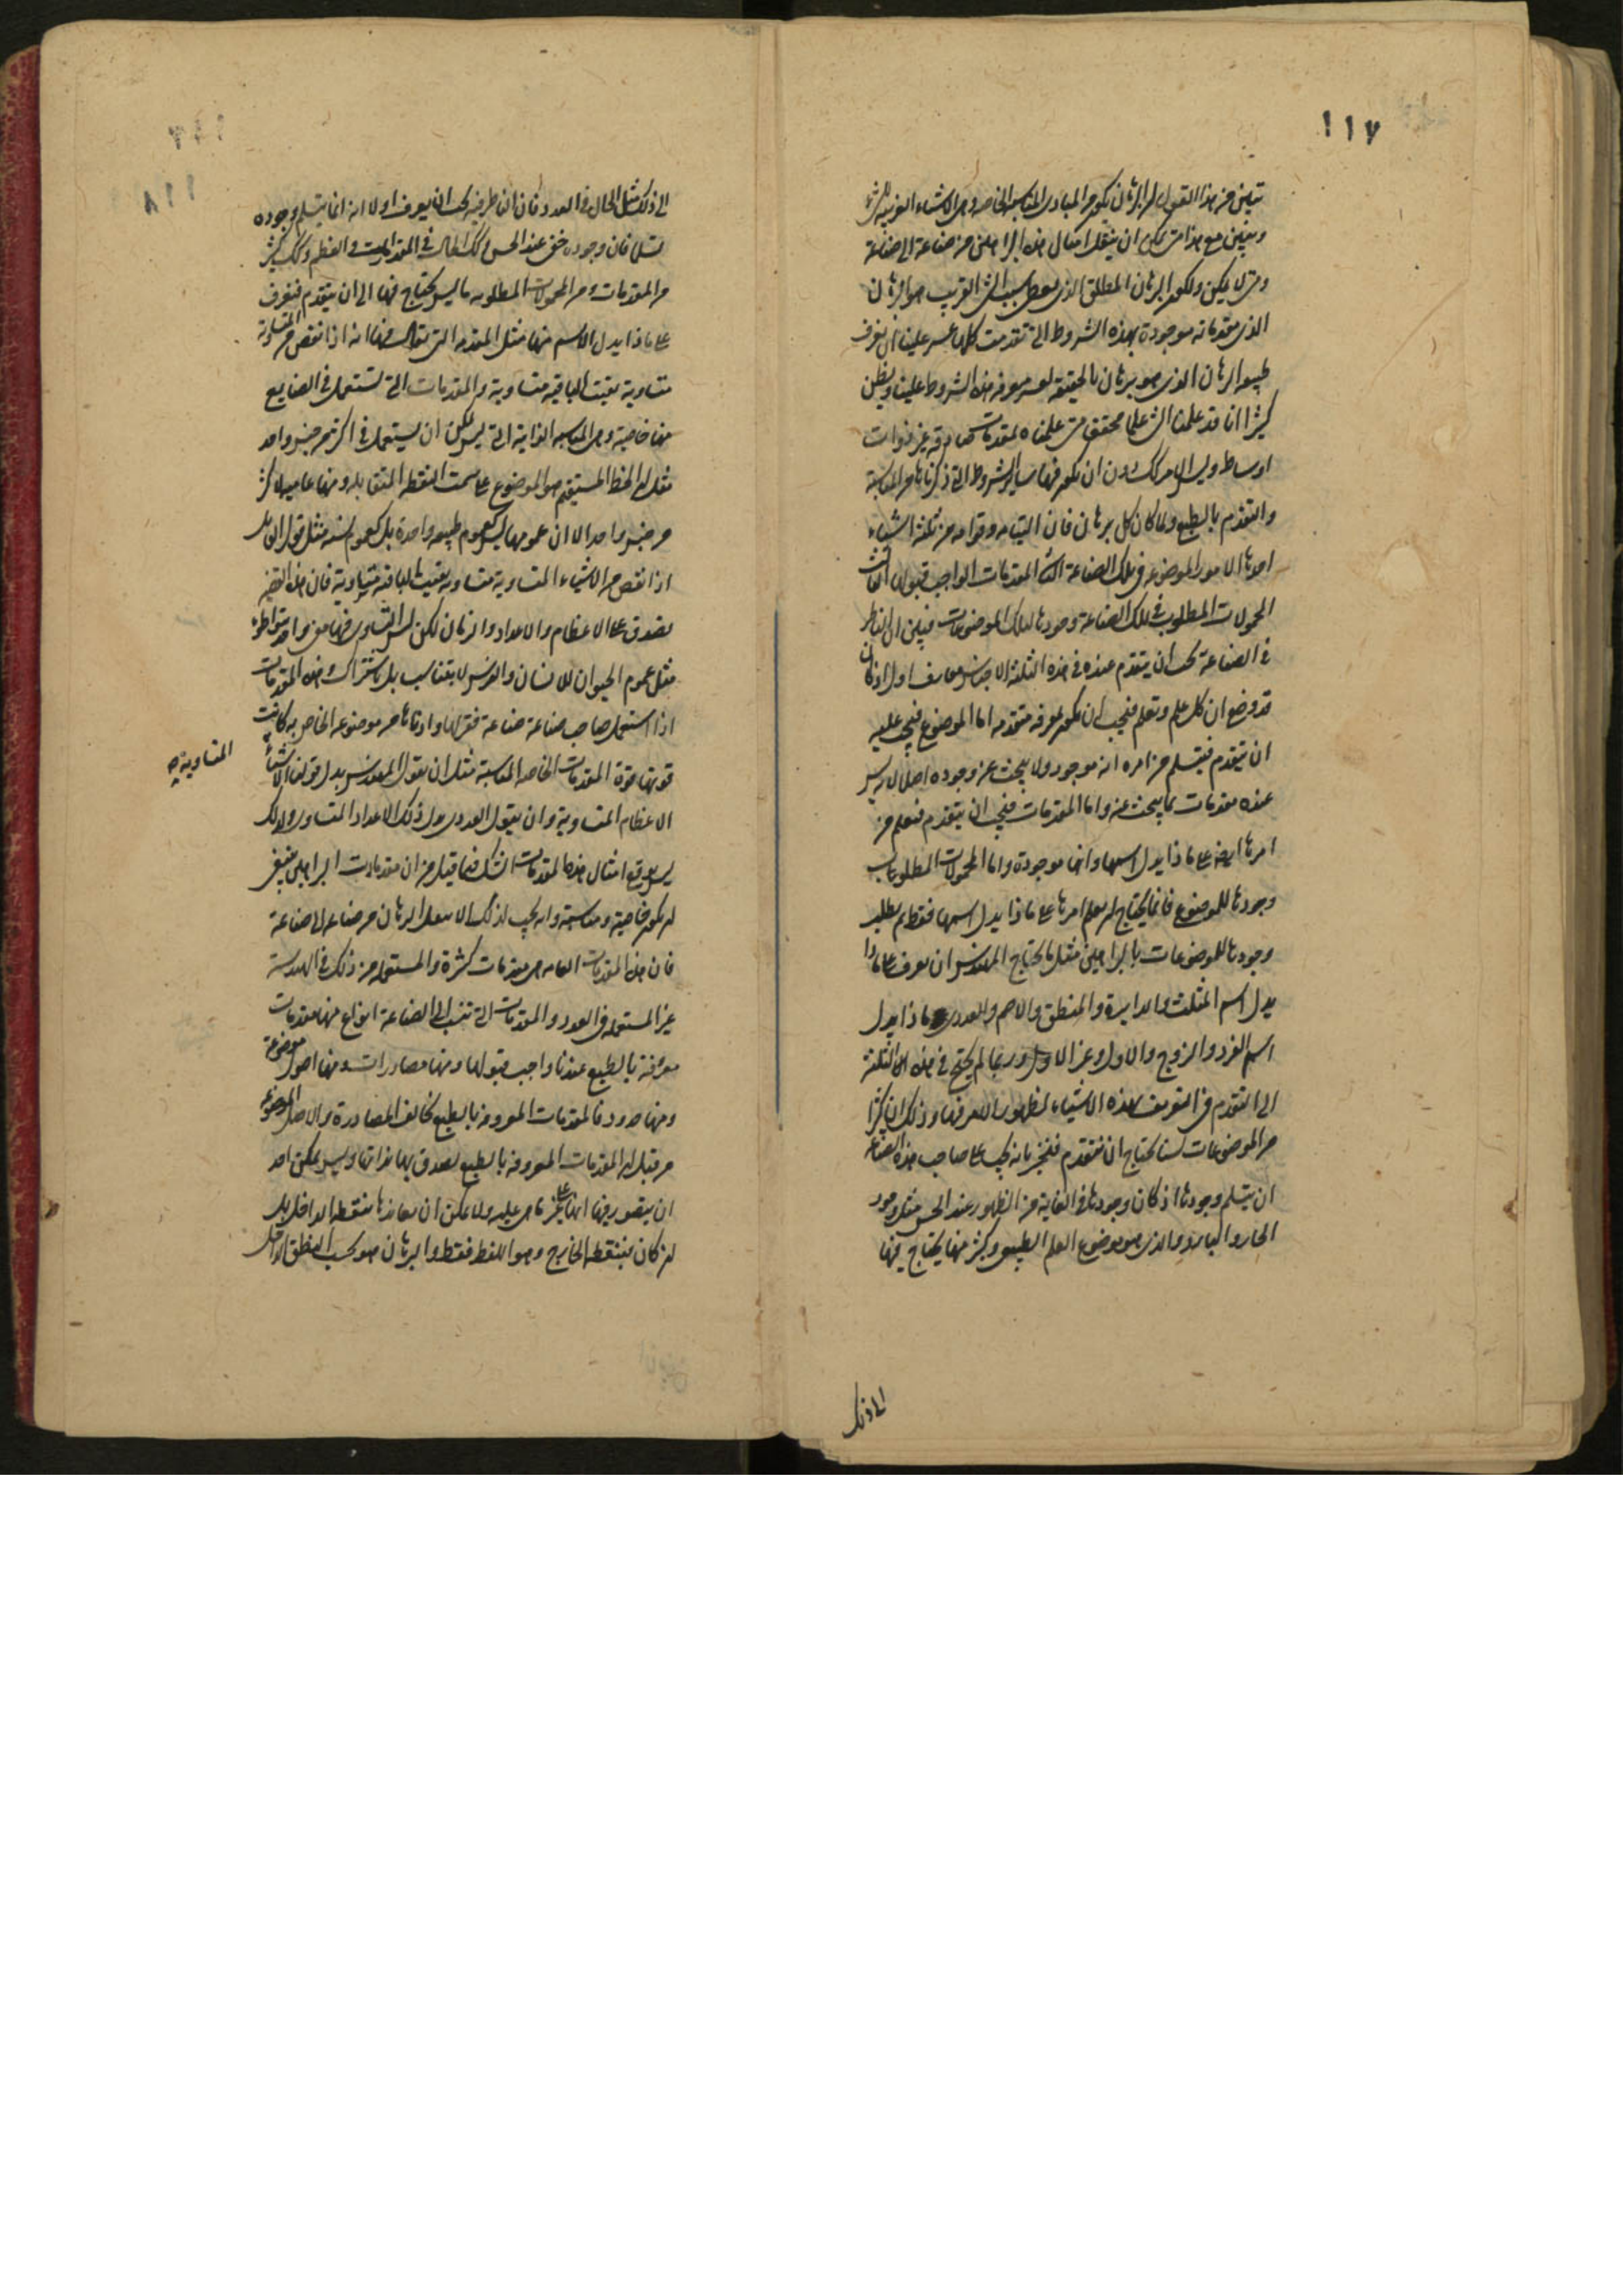 ١١٧
تبين من هذا القول ان البرهان يكون من المبادى المناسبة الخاصة وهى الاشياء القريبة للشىء
وتبين مع هذا متى يمكن ان ينقل امثال هذه البراهين من صناعة الى صناعة
ومتى لا يمكن ولكون البرهان المطلق الذى يعطى سبب الشى القريب هو البرهان
الذى مقدماته موجودة بهذه الشروط التى تقدمت كلها عسر علينا ان نعرف
طبيعة البرهان الذى هو برهان بالحقيقة لعسر معرفة هذه الشروط علينا ويظن
كثيرا انا قد علمنا الشى علما محققا متى علمناه بمقدمات صادقة غير ذوات
اوساط وليس الامر كك دون ان يكون فيها ساير الشروط التى ذكرناها من المناسبة
والتقدم بالطبع ولما كان كل برهان فان التيامه وقوامه من ثلثة اشياء
احدها الامور الموضوعة فى تلك الصناعة الثانى المقدمات الواجب قبولها الثالث
المحمولات المطلوب فى تلك الصناعة وجودها لتلك الموضوعات فبين ان الناظر
فى الصناعة يجب ان يتقدم عنده فى هذه الثلثة الاجناس معارف اول اذ كان
قد وضع ان كل علم وتعلم فيجب ان يكون لمعرفة متقدمة اما الموضوع فيجب عليه
ان يتقدم فيتسلم من امره انه موجود ولا يبحث عن وجوده اصلا اذ ليس
عنده مقدمات بما يبحث عنه واما المقدمات فيجب ان يتقدم فيعلم من
امرها ايضا على ماذا يدل اسمها وانها موجودة واما المحمولات المطلوبات
وجودها للموضوع فانما يحتاج ان يعلم امرها على ماذا يدل اسمها فقط ثم يطلب
وجودها للموضوعات بالبراهين مثل ما يحتاج المهندس ان يعرف على ماذا
يدل اسم المثلث والدايرة والمنطق والاصم والعددى ماذا يدل
اسم الفرد والزوج والاول وغير الاول وربما لم يحتج فى هذه الثلثة
الى التقدم فى التعريف بهذه الاشياء لظهور الامر فيها وذلك ان كثيرا
من الموضوعات لسنا نحتاج ان نتقدم فنخبر بانه يجب على صاحب هذه الصناعة
ان يتسلم وجودها اذ كان وجودها فى الغاية من الظهور عند الحس مثل وجود
الحار والبارد والذى هو موضوع العلم الطبيعى وكثير منها يحتاج فيها
الى ذلك
١١٨
الى ذلك مثل الحال فى العدد فان الناظر فيه يجب ان يعرف اولا انه انما يتسلم وجوده
تسلما فان وجوده خفى عند الحس وكك الحال فى المقدار فى العظم وكك كثير
من المقدمات ومن المحمولات المطلوبة ما ليس يحتاج فيها الى ان يتقدم فنعرف
على ماذا يدل الاسم منها مثل المقدمة التى يقال فيها انه اذا نقص من المتساوية
متساوية بقيت الباقية متساوية والمقدمات التى تستعمل فى الصنايع
منها خاصية وهى المناسبة الذاتية التى ليس يمكن ان يستعمل فى اكثر من جنس واحد
مثل ان الخط المستقيم هو الموضوع على سمت النقطة المتقابلة ومنها عامية لاكثر
من جنس واحد الا ان عمومها ليس كعموم طبيعة واحدة بل كعموم نسبة مثل قول القايل
اذا نقص من الاشياء المتساوية متساوية بقيت الباقية متساوية فان هذه القضية
تصدق على الاعظام والاعداد والزمان لكن ليس التساوى فيها معنى واحد بتواطؤ
مثل عموم الحيوان للانسان والفرس لا بتناسب بل باشتراك وهذه المقدمات
اذا استعمل صاحب صناعة صناعة فقربها وادناها من موضوعه الخاص به كانت
قوتها قوة المقدمات الخاصة المناسبة مثل ان يقول المهندس بدل قولنا الاشياء المتساوية
الاعظام المتساوية وان يقول العددى بدل ذلك الاعداد المتساوى ولذلك
ليس يوقع امثال هذه المقدمات الشك فيما قيل من ان مقدمات البراهين ينبغى
ان يكون خاصية ومناسبة وانه يجب لذلك الا ينقل البرهان من صناعة الى صناعة
فان هذه المقدمات العامة هى مقدمات كثيرة والمستعملة من ذلك فى الهندسة
غير المستعملة فى العدد والمقدمات التى تنسب الى الصناعة انواع منها مقدمات
معروفة بالطبع عندنا واجب قبولها ومنها مصادرات ومنها اصول موضوعة
ومنها حدود فالمقدمات المعروفة بالطبع تخالف المصادرة والاصل الموضوع
من قبل ان المقدمات المعروفة بالطبع يصدق بها بذاتها وليس يمكن احد
ان يتصور فيها انها على غير ما هى عليه ولا يمكن ان يعاندها بنطقه الداخل بل
ان كان فبنطقه الخارج وهو اللفظ فقط والبرهان هو بحسب النطق الداخل